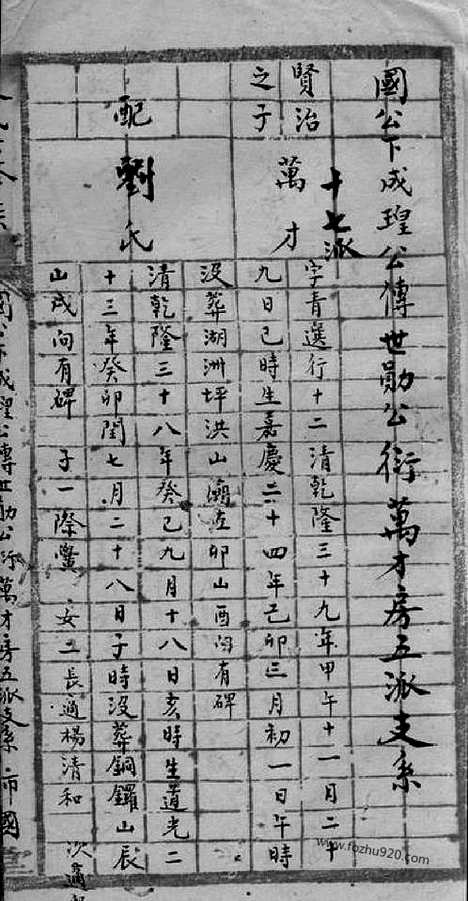 國公下成瑝公傳世勛公衍萬才房五派支系
十七派
賢治
之子
萬才
字青選行十二清乾隆三十九年甲午十一月二十
九日己時生嘉慶二十四年己卯三月初一日午時
沒葬湖洲坪洪山廟左卯山酉向有碑
配劉氏
清乾隆三十八年癸己九月十八日亥時生道光二
十三年癸卯閏七月二十八日子時沒葬銅鑼山辰
山戌向有碑 子一際 女二長適楊清和 次適
國公下成瑝公傳世勛公衍萬才房五派支系
www.fozhu920.com